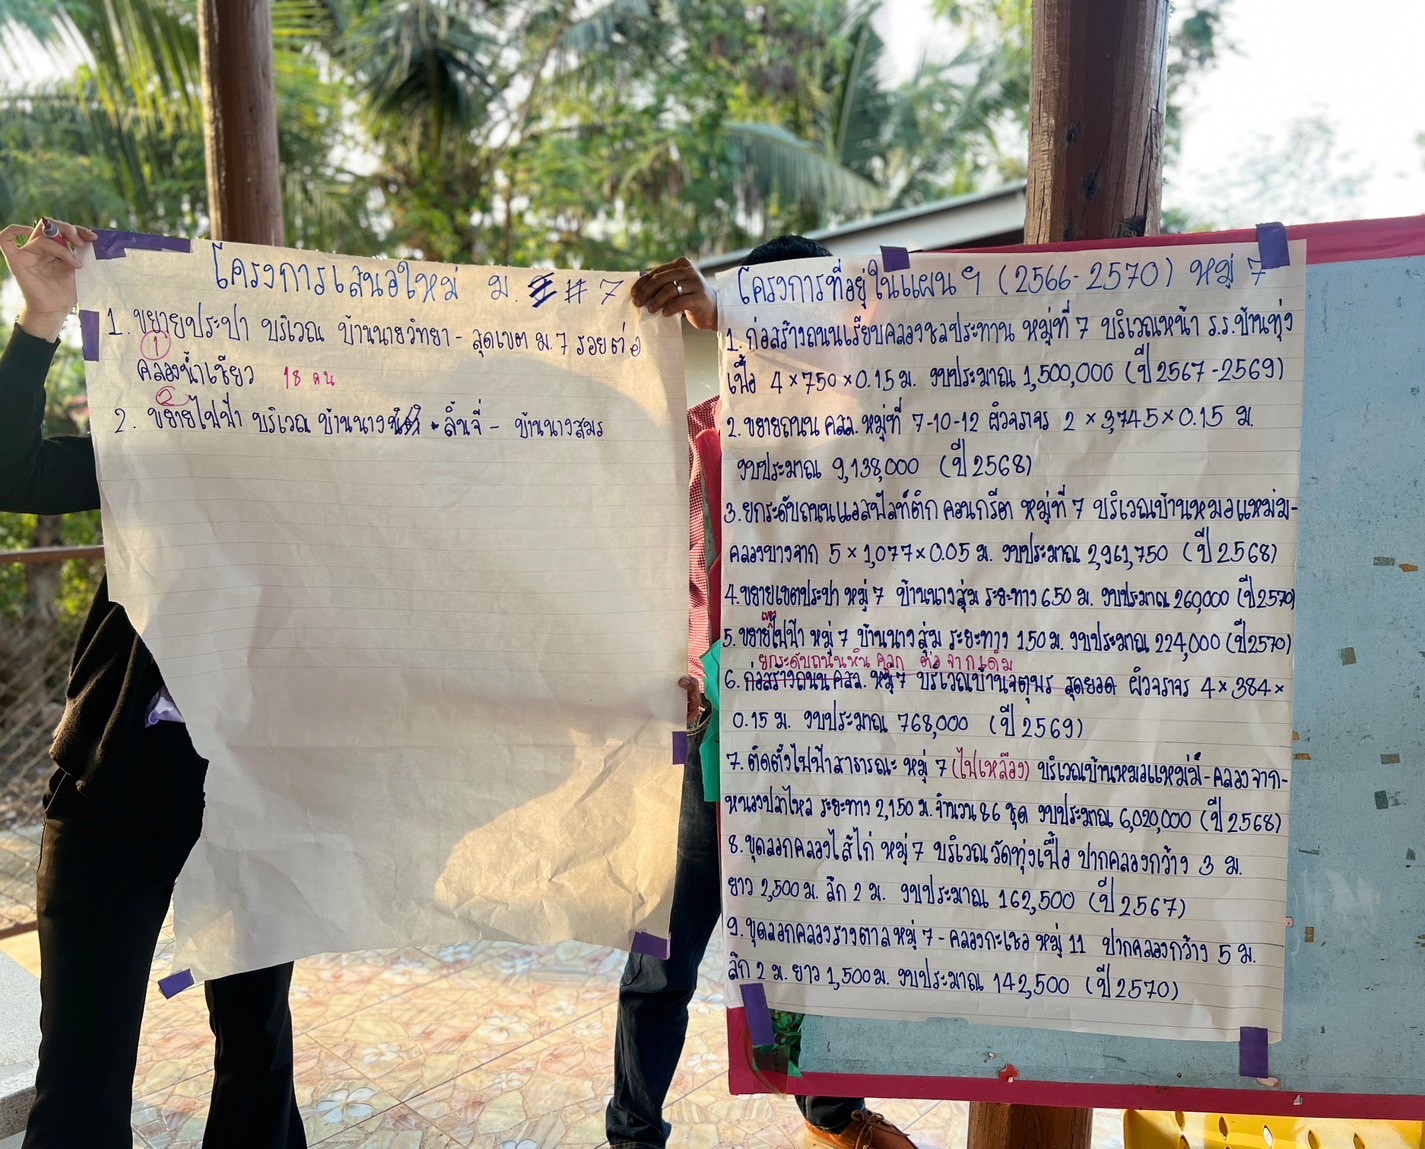 โครงการเสนอใหม่ ม. # 7
1. ขยายประปา บริเวณ บ้านนายวิทยา - สุดเขต ม.7 รอยต่อ
1
คลองน้ำเขียว 18 คน
2. ขยายไฟฟ้า บริเวณ บ้านนาง ลิ้นจี่ - บ้านนางสมร
โครงการที่อยู่ในแผนฯ (2566-2570) หมู่ 7
1. ก่อสร้างถนนเรียบคลองชลประทาน หมู่ที่ 7 บริเวณหน้า ร.ร.บ้านทุ่ง
เฟื้อ 4×750×0.15 ม. งบประมาณ 1,500,000 (ปี 2567-2569)
2. ขยายถนน คสล. หมู่ที่ 7-10-12 ผิวจราจร 2 × 3,745 × 0.15 ม.
งบประมาณ 9,138,000 (ปี 2568)
3. ยกระดับถนนแอสฟัลท์ติก คอนกรีต หมู่ที่ 7 บริเวณบ้านหมอแหม่ม-
คลองบางจาก 5 × 1,077 × 0.05 ม. งบประมาณ 2,961,750 (ปี 2568)
4. ขยายเขตประปา หมู่ 7 บ้านนางสุ่ม ระยะทาง 650 ม. งบประมาณ 260,000 (ปี 2570)
5. ขยายไฟฟ้า หมู่ 7 บ้านนางสุ่ม ระยะทาง 150 ม. งบประมาณ 224,000 (ปี 2570)
ยกระดับถนนหินคลุก ต่อจากเดิม
6. ก่อสร้างถนน คสล. หมู่ 7 บริเวณบ้านจตุพร สุดยอด ผิวจราจร 4 × 384 ×
0.15 ม. งบประมาณ 768,000 (ปี 2569)
7. ติดตั้งไฟฟ้าสาธารณะ หมู่ 7 (ไฟเหลือง) บริเวณบ้านหมอแหม่ม - คลองจาก-
หนองปลาไหล ระยะทาง 2,150 ม. จำนวน 86 ชุด งบประมาณ 6,020,000 (ปี 2568)
8. ขุดลอกคลองไส้ไก่ หมู่ 7 บริเวณวัดทุ่งเฟื้อ ปากคลองกว้าง 3 ม.
ยาว 2,500 ม. ลึก 2 ม. งบประมาณ 162,500 (ปี 2567)
9. ขุดลอกคลองรางตาล หมู่ 7 - คลองกะเชอ หมู่ 11 ปากคลองกว้าง 5 ม.
ลึก 2 ม. ยาว 1,500 ม. งบประมาณ 142,500 (ปี 2570)